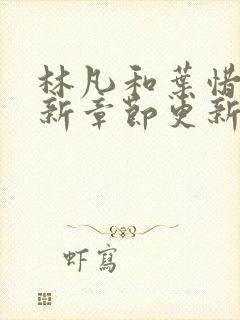 林凡和葉惜
新章節更新
虾寫